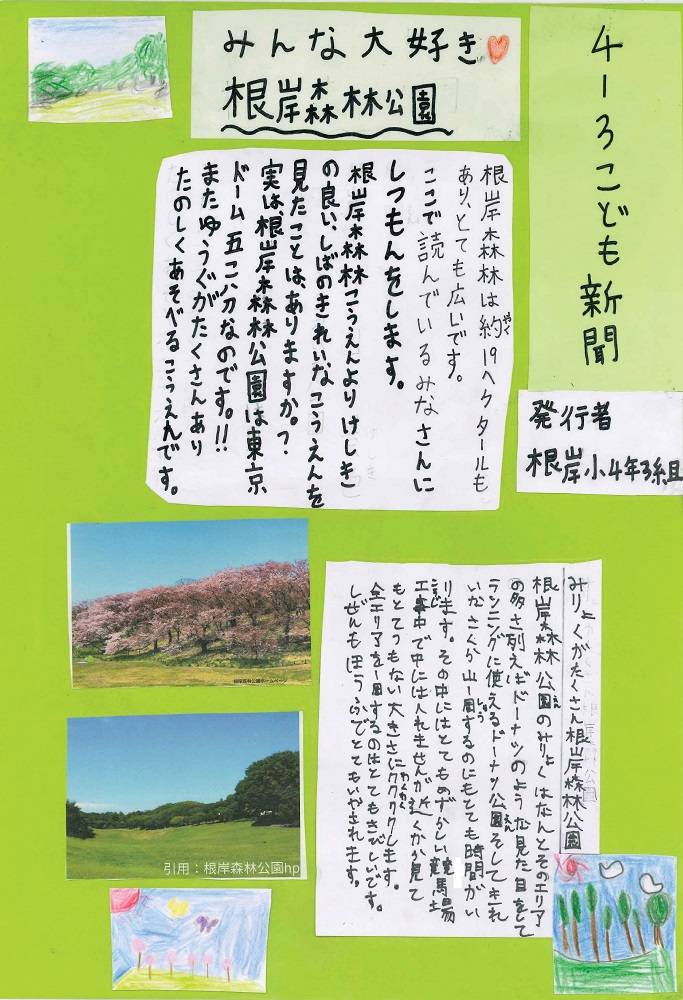 4-3こども新聞
みんな大好き
根岸森林公園
発行者
根岸小4年3組
根岸森林は約19ヘクタールも
やく
あり、とても広いです。
ここで読んでいるみなさんに
しつもんをします。
根岸森林こうえんよりけしき
の良い、しばのきれいなこうえんを
見たことは、ありますか。?
実は根岸森林公園は東京
ドーム五コ分なのです。!!
またゆうぐがたくさんあり
たのしくあそべるこうえんです。
みりょくがたくさん根岸森林公園
根岸森林公園のみりょくはなんとそのエリア
の多さ例えばドーナツのような見た目をして
ランニングに使えるドーナツ公園そしてきれ
いなさくら山一周するのにもとても時間がい
ります。その中にはとてもめずらしい競馬場
工事中で中には入れませんが近くから見て
もとてつもない大きさにワクワクします。
全エリアを一周するのはとてもきびしいです。
しぜんもほうふでとてもいやされます。
根岸森林公園ホームページ
引用：根岸森林公園hp